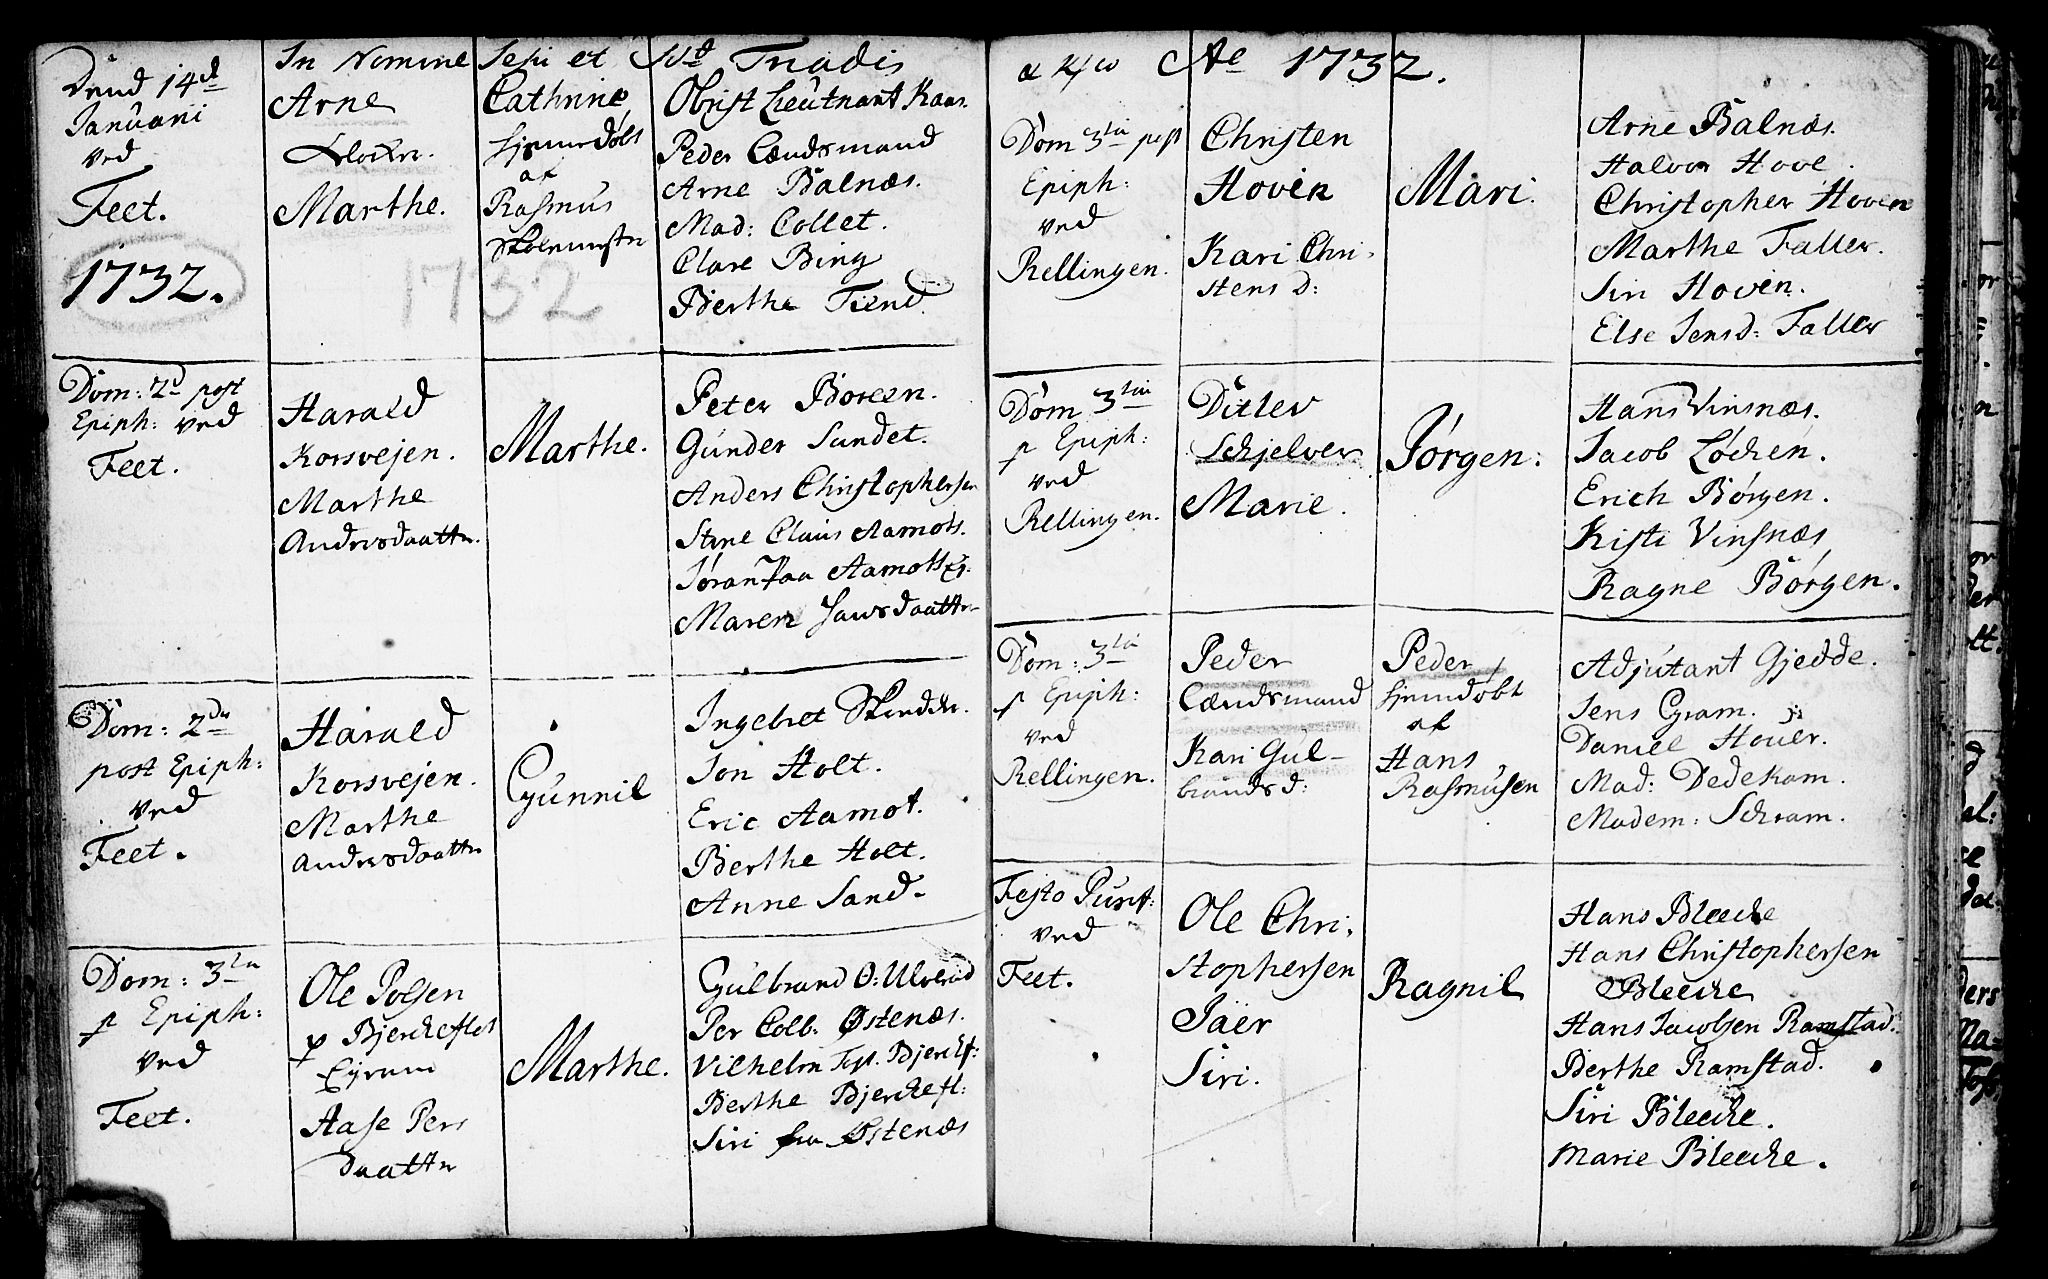 In Nomine Jesu et SSt Triadis
Dend 14d
Januarii
ved
Feet.
1732.
Arne
Klocker.
Marthe.
1732
Cathrine
hjemmedøbt
af
Rasmus
Skolemester
Obrist Lieutnant Kaas.
Peder Lændsmand
Arne Balnæs.
Mad: Collet.
Clare Bing
Berthe Tiend.
Dom: 2d post
Epiph: ved
Feet.
Harald
Korsvejen.
Marthe
Andersdaatter.
Marthe.
Peter Boreen.
Gunder Sundet.
Anders Christophersen
Stine Claus Aamots.
Søran Paa Aamots Ej.
Maren Hansdaatter
Dom: 2da
post Epiph:
ved
Feet.
Harald
Korsvejen.
Marthe
Andersdaatter
Gunnil
Ingebret Skredder.
Jon Holt.
Eric Aamot.
Berthe Holt.
Anne Sand.
Dom: 3tia
p Epiph:
ved
Feet.
Ole Polsen
p Bjerckeflet
Eyrum
Aase Pers
daatter
Marthe.
Gulbrand O: Ulverud
Per Colb: Østenæs.
Vilhelm Bjerckf:
Berthe Bjerckefl.
Siri fra Østenæs
Ao 1732.
Dom 3tia post
Epiph:
ved
Rellingen.
Christen
Hoven
Kari Chri-
stens D:
Mari.
Arne Balnæs.
Halvor Hove.
Christopher Hoven
Marthe Faller.
Siri Hoven.
Else Jensd: Faller
Dom 3tia
p Epiph:
ved
Rellingen.
Ditlev
Schjelver
Marie.
Jørgen.
Hans Vinsnæs.
Jacob Løchen.
Erich Børgen.
Kisti Vinsnæs
Ragne Børgen.
Dom: 3tia
p Epiph:
ved
Rellingen.
Peder
Lændsmand
Kari Gul-
brands d:
Peder
hjemdøbt
af
Hans
Rasmusen
Adjutant Gjedde.
Jens Gram.
Daniel Houer.
Mad: Dedekam.
Madem: Schram.
Festo Purif:
ved
Feet.
Ole Chri-
stophersen
Jäer
Siri.
Ragnil
Hans Bleeche
Hans Christophersen
Bleeche
Hans Jacobsen Ramstad.
Berthe Ramstad.
Siri Bleeche.
Marie Bleeche.